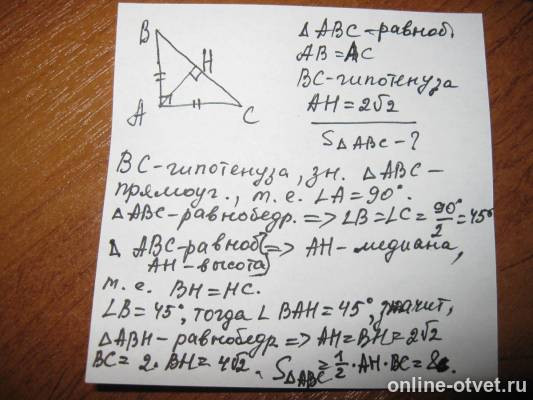 B
H
A
C
Δ ABC – равноб.
AB = AC
BC – гипотенуза
AH = 2√2
S Δ ABC – ?
BC – гипотенуза, зн. Δ ABC –
прямоуг., т.е. ∠A = 90°.
Δ ABC – равнобедр. => ∠B = ∠C = 90°/2 = 45°
Δ ABC – равноб (=> AH – медиана,
AH – высота)
т.е. BH = HC.
∠B = 45°, тогда ∠ BAH = 45°, значит,
Δ ABH – равнобедр => AH = BH = 2√2
BC = 2 · BH = 4√2. S Δ ABC = 1/2 · AH · BC = 8.
online-otvet.ru